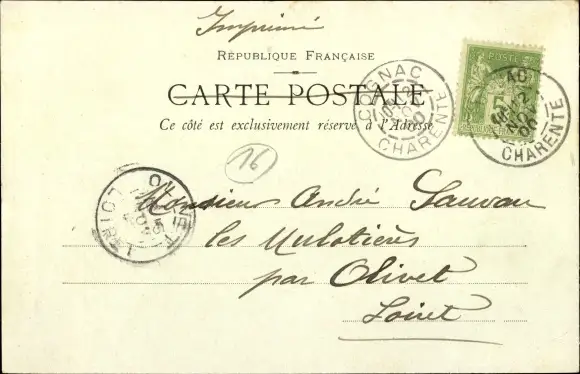 Imprimé
RÉPUBLIQUE FRANÇAISE
CARTE POSTALE
Ce côté est exclusivement réservé à l'Adresse
COGNAC
CHARENTE
POSTE
CHARENTE
16
OLIVET
LOIRET
Monsieur André Sauvau
les Mulotières
par Olivet
Loiret